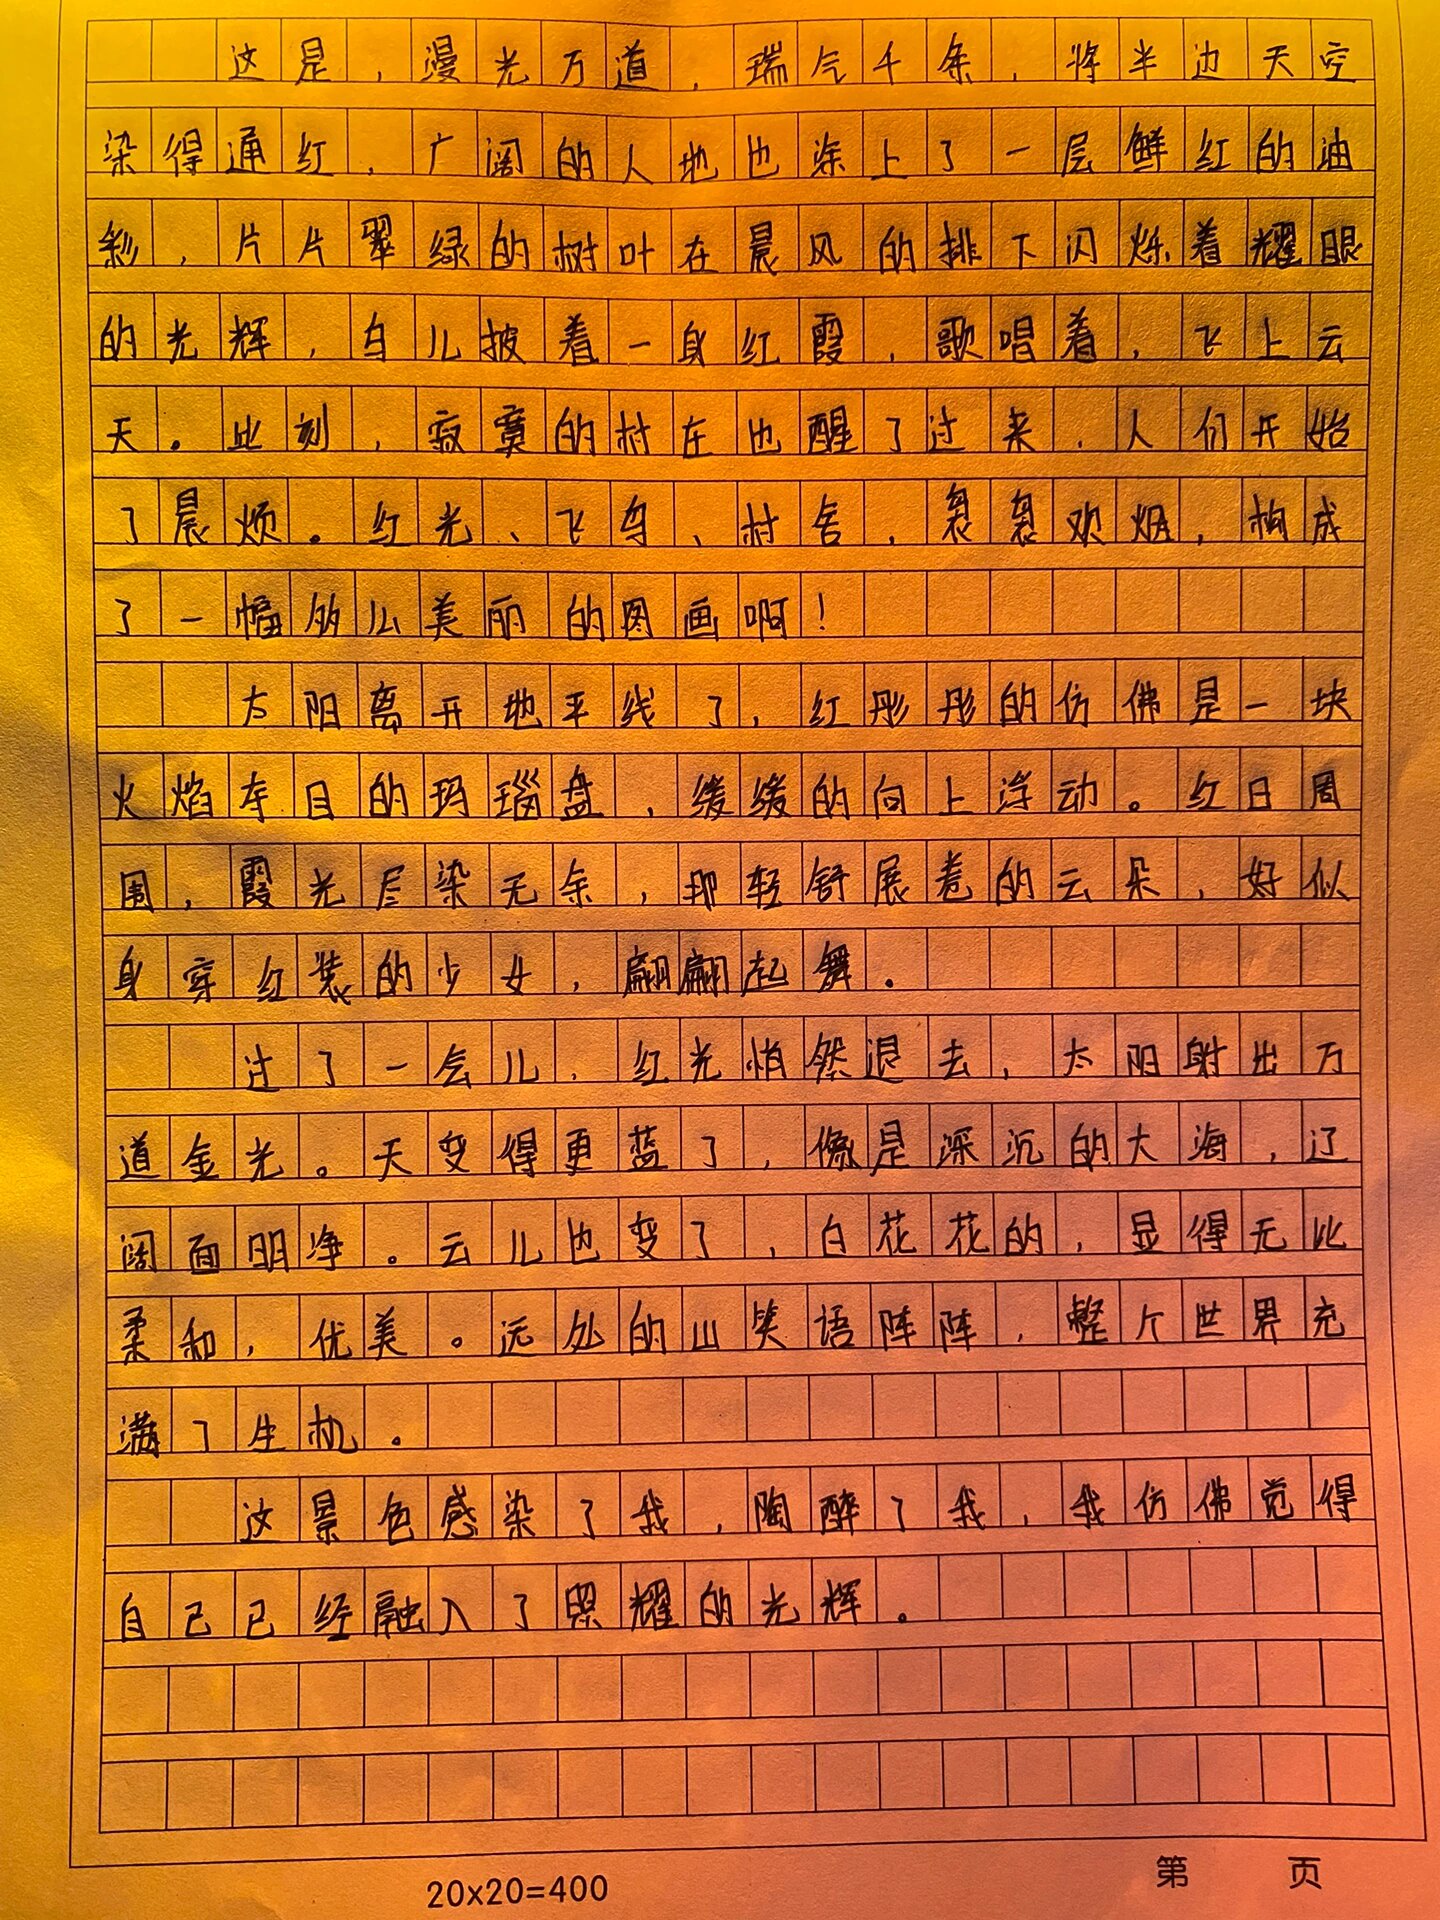 这是，漫光万道，瑞气千条，将半边天空
染得通红，广阔的人地也涂上了一层鲜红的油
彩，片片翠绿的树叶在晨风的排下闪烁着耀眼
的光辉，鸟儿披着一身红霞，歌唱着，飞上云
天。此刻，寂寞的村庄也醒了过来，人们开始
了晨烦。红光、飞鸟、村舍，袅袅欢烟，构成
了一幅多么美丽的图画啊！
太阳离开地平线了，红彤彤的仿佛是一块
火焰夺目的玛瑙盘，缓缓的向上浮动。红日周
围，霞光尽染无余，那轻舒展卷的云朵，好似
身穿红装的少女，翩翩起舞。
过了一会儿，红光悄然退去，太阳射出万
道金光。天变得更蓝了，像是深沉的大海，辽
阔面明净。云儿也变了，白花花的，显得无比
柔和，优美。远处的山笑语阵阵，整个世界充
满了生机。
这景色感染了我，陶醉了我，我仿佛觉得
自己已经融入了照耀的光辉。
20x20=400
第 页